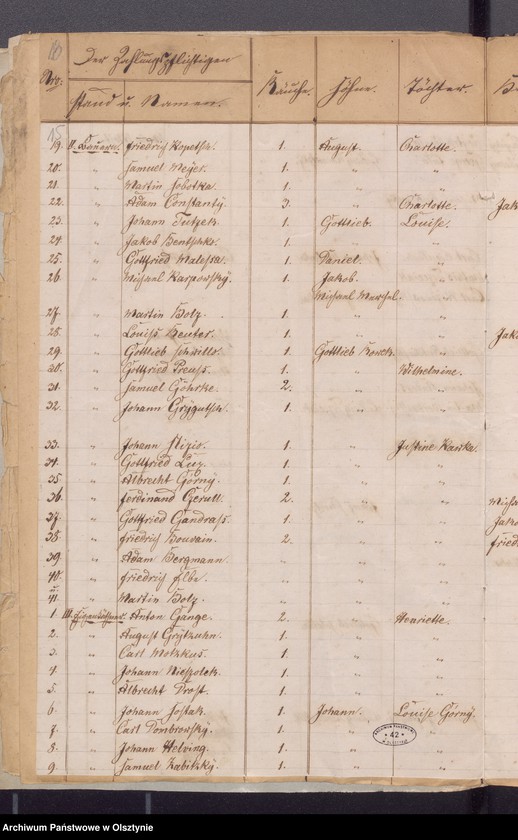 Der Zahlungspflichtigen
Nro:
Stand u. Namen.
Räuche.
Söhne.
Töchter.
19. II. Friedrich Kopetsch. 1. August. Charlotte.
20. " Samuel Meyer. 1. " "
21. " Martin Sobotka. 1. " "
22. " Adam Constanty. 3. " Charlotte. Jak
23. " Johann Tutzek. 1. Gottlieb. Louise.
24. " Jakob Bentschko. 1. " "
25. " Gottfried Malessa. 1. Daniel. "
26. " Michael Karpowsky. 1. Jakob. "
Michael
27. " Martin Bolz. 1. " "
28. " Louise Reuter. 1. " " Jak
29. " Gottlieb 1. Gottlieb "
30. " Gottfried Preuss. 1. " Wilhelmine.
31. " Samuel Göhrke. 2. " "
32. " Johann Grygutsch. 1. " "
33. " Johann Nizio. 1. " Justine Kaska.
34. " Gottfried Luz. 1. " "
35. " Albrecht Górny. 1. " "
36. " Ferdinand Gerull. 2. " " Micha
37. " Gottfried Gandrass. 1. " " Jako
38. " Friedrich Bouvain. 2. " " Fried
39. " Adam Bergmann. " " "
40. " Friedrich " " "
u.
41. " Martin Bolz. " " "
1. III. Eigenkäthner. Anton Gange. 2. " Henriette.
2. " August Grytzuhn. 1. " "
3. " Carl Motzkus. 1. " "
4. " Johann 1. " "
5. " Albrecht Prost. 1. " "
6. " Johann Jostak. 1. Johann. Louise Górny.
7. " Carl Dombrowsky. 1. "
8. " Johann Helving. 1. "
9. " Samuel Zabitzky. 1. " "
42
Archiwum Państwowe w Olsztynie